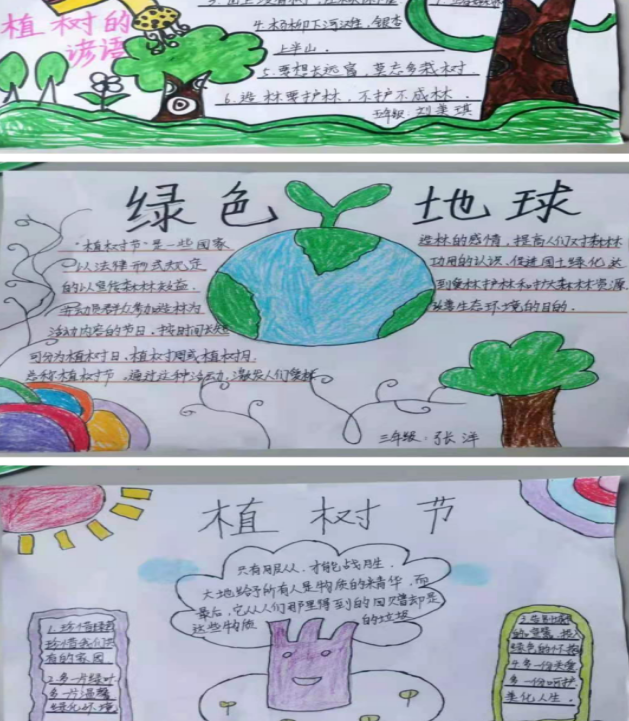 植树的
谚语
4.杨柳下河滩，银杏
上半山。
5.要想长远富，莫忘多栽树。
6.造林要护林，不护不成林。
五年级：刘美琪
绿色地球
"植树节"是一些国家
以法律形式规定
的以宣传森林效益，
并动员群众参加造林为
活动内容的节日，按时间长短
可分为植树日、植树周或植树月。
总称植树节。通过这种活动，激发人们爱林
造林的感情，提高人们对森林
功用的认识，促进国土绿化，达
到爱林护林和扩大森林资源
改善生态环境的目的。
三年级：张洋
植树节
只有服从，才能战胜。
大地给予所有人是物质的精华，而
最后，它从人们那里得到的回赠却是
这些物质的垃圾
1.珍惜
珍惜我们
有的家园
2.多一片绿叶
多一片温馨
绿化环境
绿色的怀抱
4.多一份关爱
多一份呵护
美化人生。